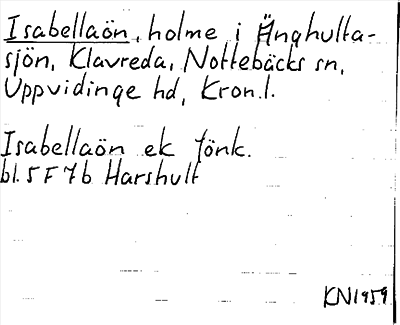 Isabellaön, holme i Änghulta-
sjön, Klavreda, Nottebäcks sn,
Uppvidinge hd, Kron.l.
Isabellaön ek Jönk.
bl. 5 F 7 b Harshult
KN 1959